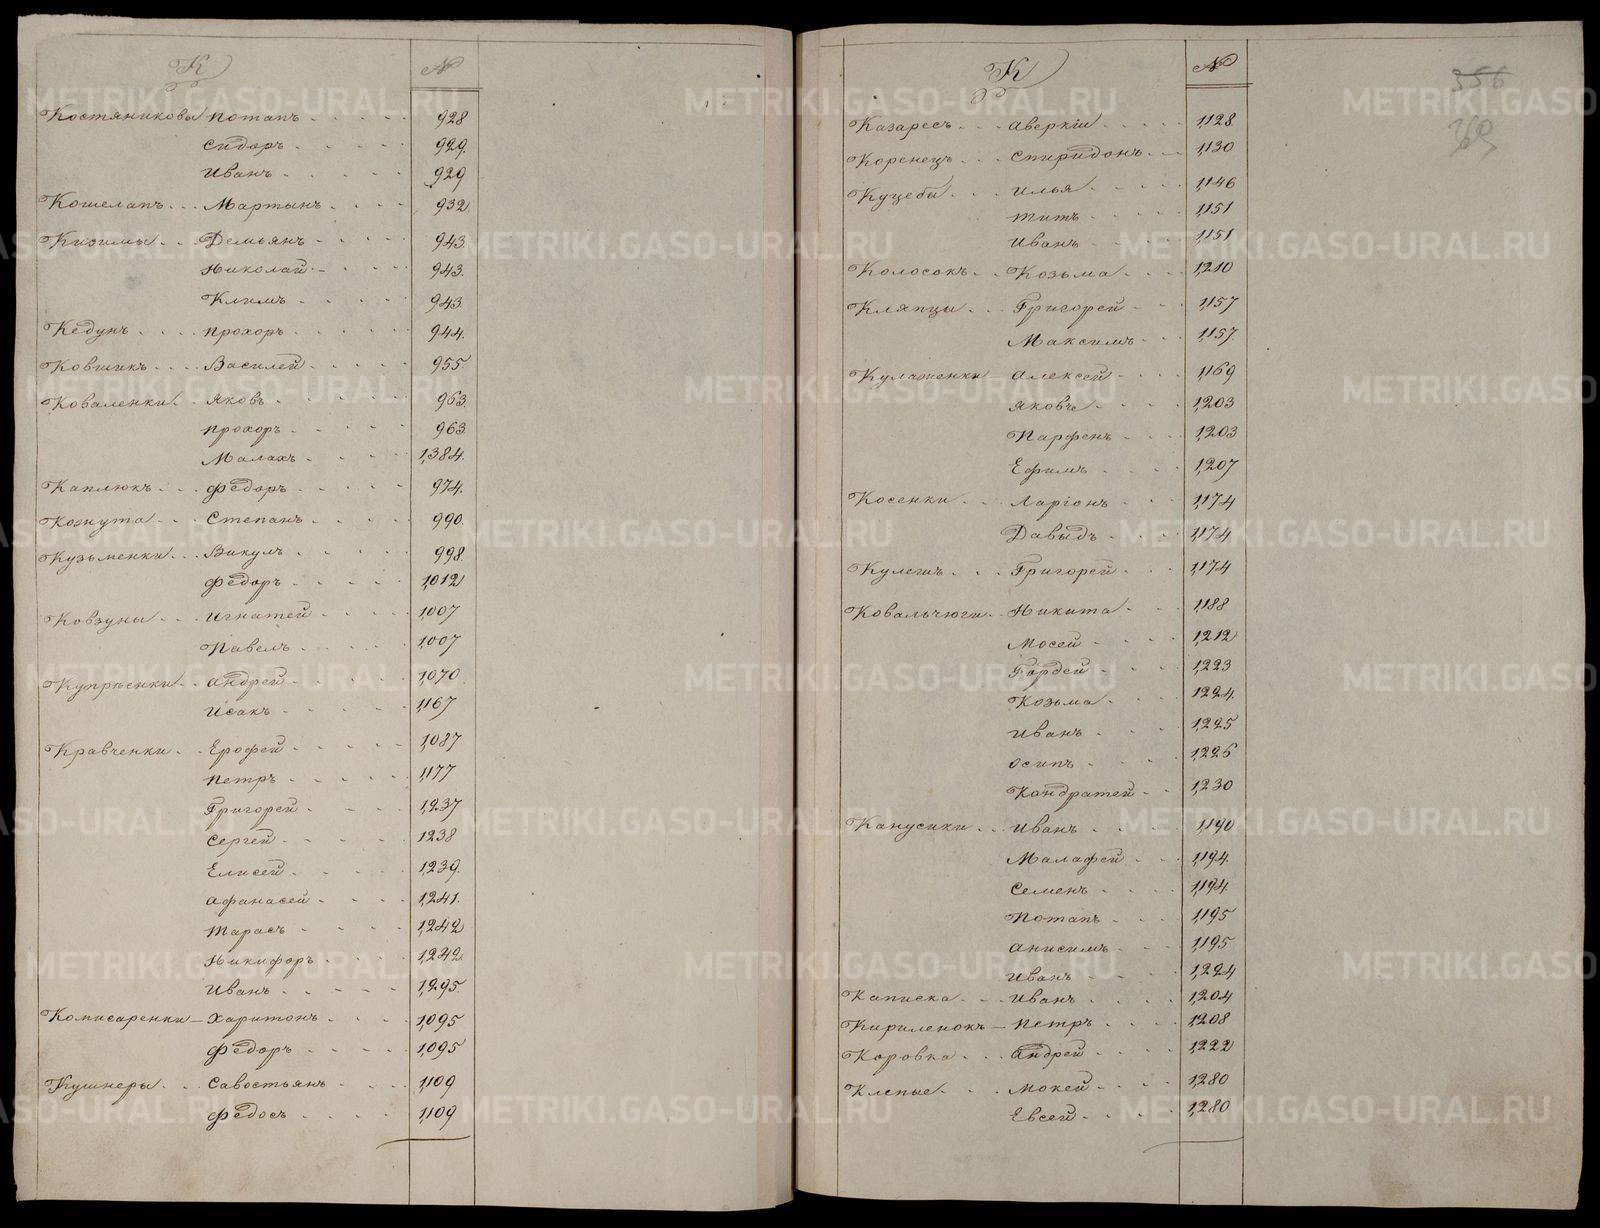 К №
Костяниковы Потапъ 928
Сидоръ 929.
Иванъ 929
Кошелапъ Мартынъ 932.
Кизимы Демьянъ 943.
Николай 943.
Климъ 943
Кедунъ Прохоръ 944.
Ковшикъ Василей 955.
Коваленки Яковъ 963.
Прохоръ 963
Малахъ 1,384.
Каплюкъ Федоръ 974.
Степанъ 990.
Кузьменки Викулъ 998.
Федоръ 1,012
Ковзуны Игнатей 1,007
Павелъ 1,007
Купрѣенки Андрей 1,070.
Исакъ 1,167
Кравченки Ерофей 1,087
Петръ 1,177
Григорей 1,237
Сергей 1,238
Елисей 1,239.
Афанасей 1,241.
Тарасъ 1,242
Никифоръ 1,242
Иванъ 1,295.
Комисаренки Харитонъ 1,095
Федоръ 1,095
Кушнеры Савостьянъ 1,109
Федосъ 1,109
К №
356
Казаресъ Аверкiи 1,128.
Коренецъ Спиридонъ 1,130
Куцебы Илья 1,146
Титъ 1,151
Иванъ 1,151
Колосокъ Козьма 1,210
Кляпцы Григорей 1,157
Максимъ 1,157.
Алексей 1,169
1,203
Парфенъ 1,203
Ефимъ 1,207
Косенки Ларiонъ 1,174
Давыдъ 1,174
Кулешъ Григорей 1,174
Ковальчюги Никита 1,188
Мосей 1,212
Гордей 1,223
Козьма 1,224.
Иванъ 1,225
Осипъ 1,226
Кондратей 1,230
Канусики Иванъ 1,190
Малафей 1,194.
Семенъ 1,194
Потапъ 1,195
Анисимъ 1,195
Иванъ 1,224
Каписка Иванъ 1,204
Кириленокъ Петръ 1,208
Коровка Андрей 1,222
Клепые Мокей 1,280
Евсей 1,280
METRIKI.GASO-URAL.RU